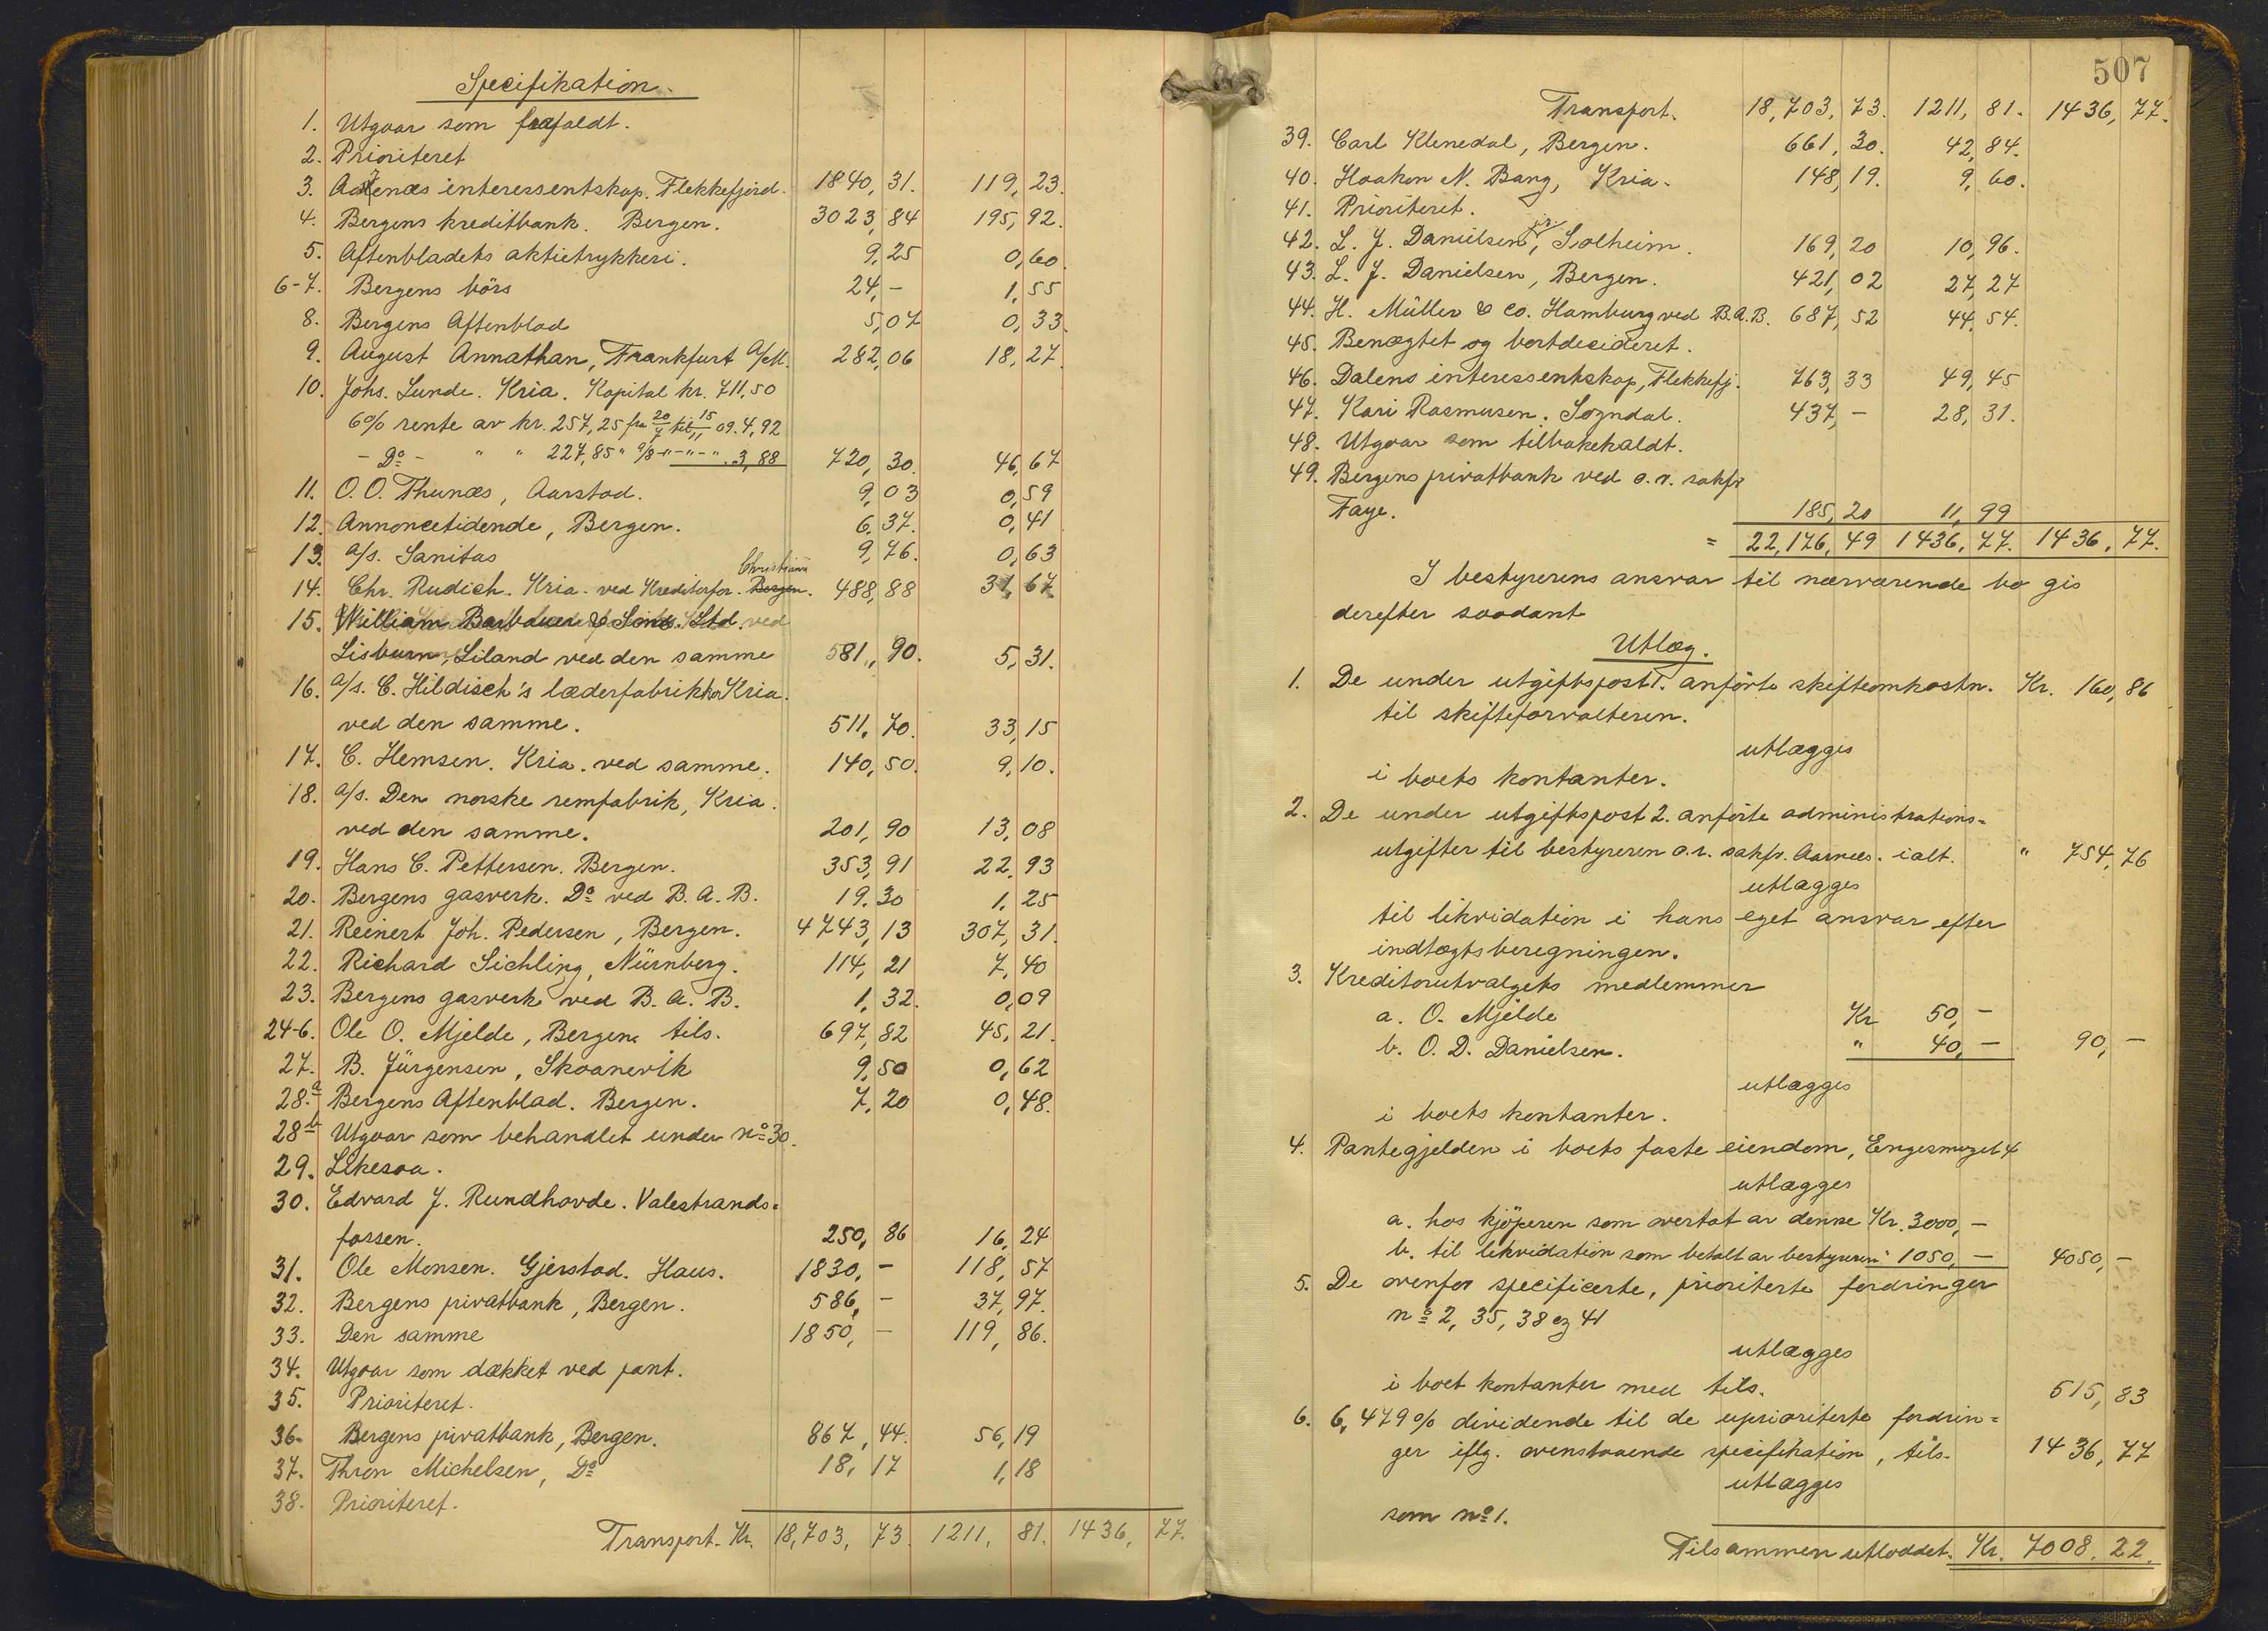 Specifikation.
1. Utgaar som frafaldt.
2. Prioriteret
3. Aafenæs interessentskap. Flekkefjord. 1840,31. 119,23.
4. Bergens kreditbank. Bergen. 3023,84 195,92.
5. Aftenbladets aktietrykkeri. 9,25 0,60.
6-7. Bergens börs 24,- 1,55
8. Bergens Aftenblad 5,07 0,33.
9. August Annathan, Frankfurt a/M. 282,06 18,27.
10. Johs. Lunde. Kria. Kapital kr. 711,50
6% rente av kr. 257,25 fra 20/7 til 15/11 09. 4,92
- Do - " " 227,85 " 9/8 -"-"-". 3,88 720,30. 46,67
11. O. O. Thunæs, Aarstad. 9,03 0,59
12. Annoncetidende, Bergen. 6,37. 0,41
13. a/s. Sanitas 9,76. 0,63
Christiania
14. Chr. Rudich. Kria. ved Kreditorfor. Bergen. 488,88 31,67
15. William Barbour & Sons. Ltd. ved
Lisburn, Liland ved den samme 581,90. 5,31.
16. a/s. C. Hildisch's læderfabrikker Kria.
ved den samme. 511,70. 33,15
17. C. Hemsen. Kria. ved samme. 140,50. 9,10.
18. a/s. Den norske remfabrik, Kria.
ved den samme. 201,90 13,08
19. Hans C. Pettersen. Bergen. 353,91 22,93
20. Bergens gasverk. Do ved B. A. B. 19,30 1,25
21. Reinert Joh. Pedersen, Bergen. 4743,13 307,31.
22. Richard Sichling, Nürnberg. 114,21 7,40
23. Bergens gasverk ved B. A. B. 1,32. 0,09
24-6. Ole O. Mjelde, Bergen. tils. 697,82 45,21.
27. B. Jürgensen, Skaanevik 9,50 0,62
28.a Bergens Aftenblad. Bergen. 7,20 0,48.
28b Utgaar som behandlet under no 30.
29. Likesaa.
30. Edvard J. Rundhovde. Valestrands=
fossen. 250,86 16,24
31. Ole Monsen. Gjerstad. Haus. 1830,- 118,57
32. Bergens privatbank, Bergen. 586,- 37,97.
33. Den samme 1850,- 119,86.
34. Utgaar som dækket ved pant.
35. Prioriteret.
36. Bergens privatbank, Bergen. 867,44. 56,19
37. Thron Michelsen, Do 18,17 1,18
38. Prioriteret.
Transport. Kr. 18,703,73. 1211,81. 1436,77.
507
Transport. 18,703,73. 1211,81. 1436,77.
39. Carl Klenedal, Bergen. 661,30. 42,84.
40. Haakon N. Bang, Kria. 148,19. 9,60.
41. Prioriteret.
42. L. J. Danielsen jr., Solheim. 169,20 10,96.
43. L. J. Danielsen, Bergen. 421,02 27,27
44. H. Müller & Co. Hamburg ved B.A.B. 687,52 44,54.
45. Benægtet og bortdesideret.
46. Dalens interessentskap, Flekkefj. 763,33 49,45
47. Kari Rasmusen. Sogndal. 437,- 28,31.
48. Utgaar som tilbakekaldt.
49. Bergens privatbank ved o.r. sakfr
Faye. 185,20 11,99
= 22,176,49 1436,77. 1436,77.
I bestyrerens ansvar til nærværende bo gis
derefter saadant
Utlæg.
1. De under utgiftspost 1. anförte skifteomkostn. Kr. 160,86
til skifteforvalteren.
utlægges
i boets kontanter.
2. De under utgiftspost 2. anförte administrations=
utgifter til bestyreren o.r. sakfr. Aarnæs. ialt. " 754,76
utlægges
til likvidation i hans eget ansvar efter
indtægtsberegningen.
3. Kreditorutvalgets medlemmer
a. O. Mjelde Kr 50,-
b. O. D. Danielsen. " 40,- 90,-
utlægges
i boets kontanter.
4. Pantegjelden i boets faste eiendom, Engesmuget 4
utlægges
a. hos kjöperen som overtat av denne Kr. 3000,-
b. til likvidation som betalt av bestyreren " 1050,- 4050,-
5. De ovenfor specificerte, prioriterte fordringer
no 2, 35, 38 og 41
utlægges
i boet kontanter med tils. 515,83
6. 6,479% dividende til de uprioriterte fordrin=
ger iflg. ovenstaaende specifikation, tils. 1436,77
utlægges
som no 1.
Tilsammen utloddet. Kr. 7008,22.